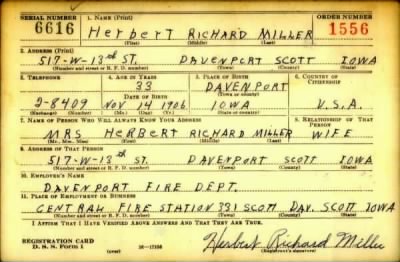 SERIAL NUMBER 1. NAME (Print) ORDER NUMBER
6616 Herbert RICHARD MILLER 1556
(First) (Middle) (Last)
2. ADDRESS (Print)
517-W-13th ST. DAVENPORT SCOTT IOWA
(Number and street or R. F. D. number) (Town) (County) (State)
3. TELEPHONE 4. AGE IN YEARS 5. PLACE OF BIRTH 6. COUNTRY OF CITIZENSHIP
33 DAVENPORT
DATE OF BIRTH (Town or county)
2-8409 NOV 14 1906 IOWA U.S.A.
(Exchange) (Number) (Mo.) (Day) (Yr.) (State or country)
7. NAME OF PERSON WHO WILL ALWAYS KNOW YOUR ADDRESS 8. RELATIONSHIP OF THAT PERSON
MRS HERBERT RICHARD MILLER WIFE
(Mr., Mrs., Miss) (First) (Middle) (Last)
9. ADDRESS OF THAT PERSON
517-W-13th ST. DAVENPORT SCOTT IOWA
(Number and street or R. F. D. number) (Town) (County) (State)
10. EMPLOYER'S NAME
DAVENPORT FIRE DEPT.
11. PLACE OF EMPLOYMENT OR BUSINESS
CENTRAL FIRE STATION 331 SCOTT DAV. SCOTT IOWA
(Number and street or R. F. D. number) (Town) (County) (State)
I AFFIRM THAT I HAVE VERIFIED ABOVE ANSWERS AND THAT THEY ARE TRUE.
REGISTRATION CARD
D. S. S. Form 1 Herbert Richard Miller
(Registrant's signature)